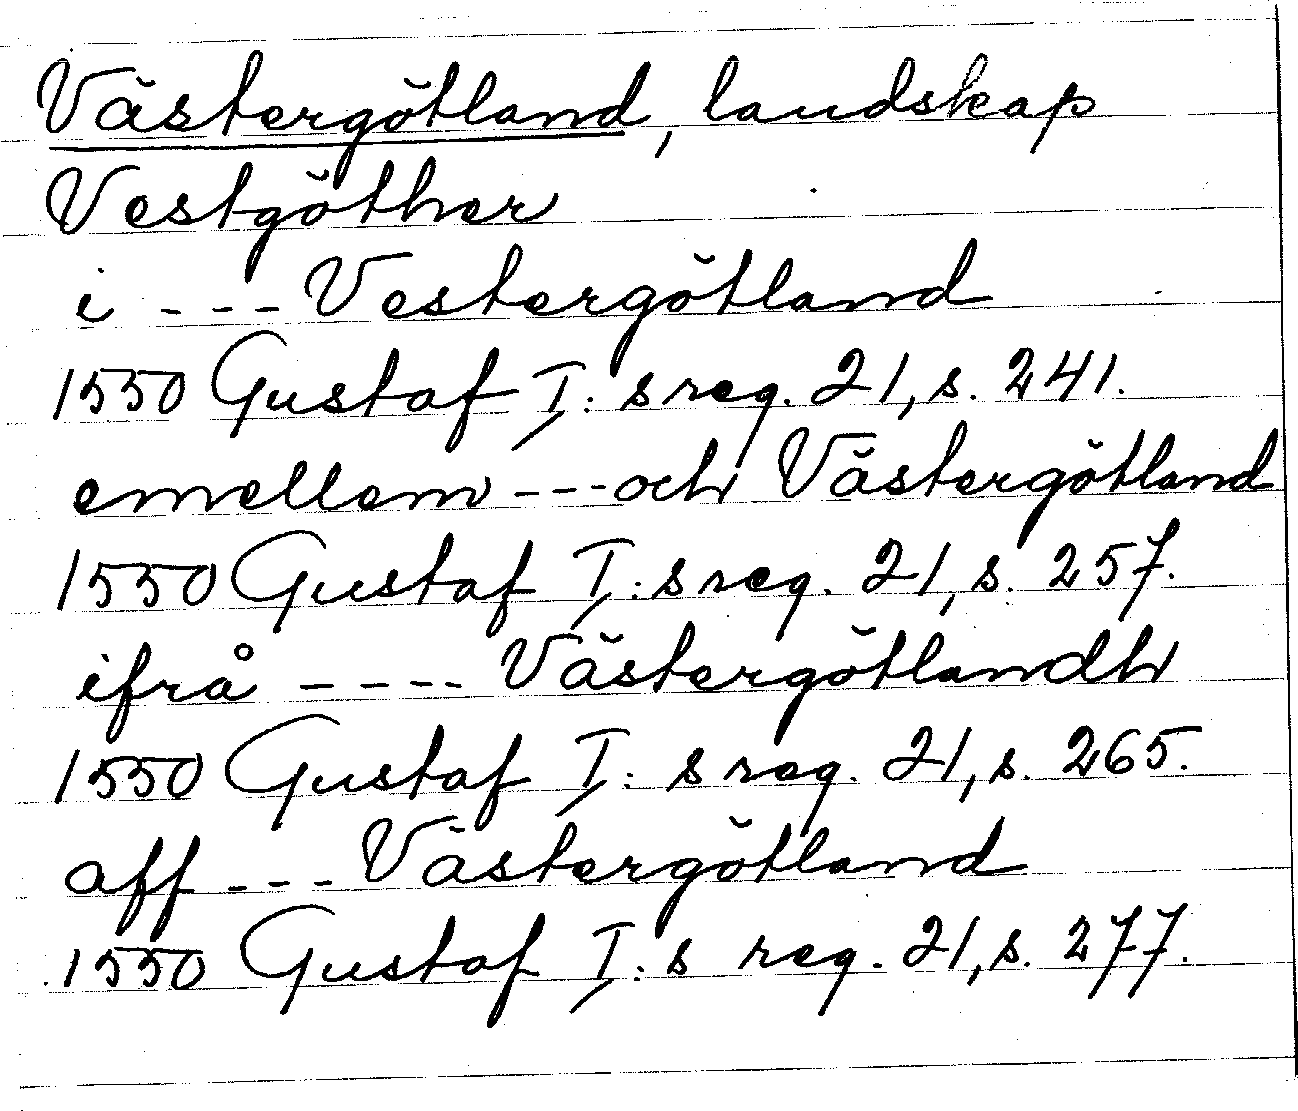 Västergötland, landskap
Vestgöther
i --- Vestergötland
1550 Gustaf I:s reg. 21, s. 241.
emellem --- och Västergötland
1550 Gustaf I:s reg. 21, s. 257.
ifrå ---- Västergötlandh
1550 Gustaf I:s reg. 21, s. 265.
aff --- Västergötland
1550 Gustaf I:s reg. 21, s. 277.